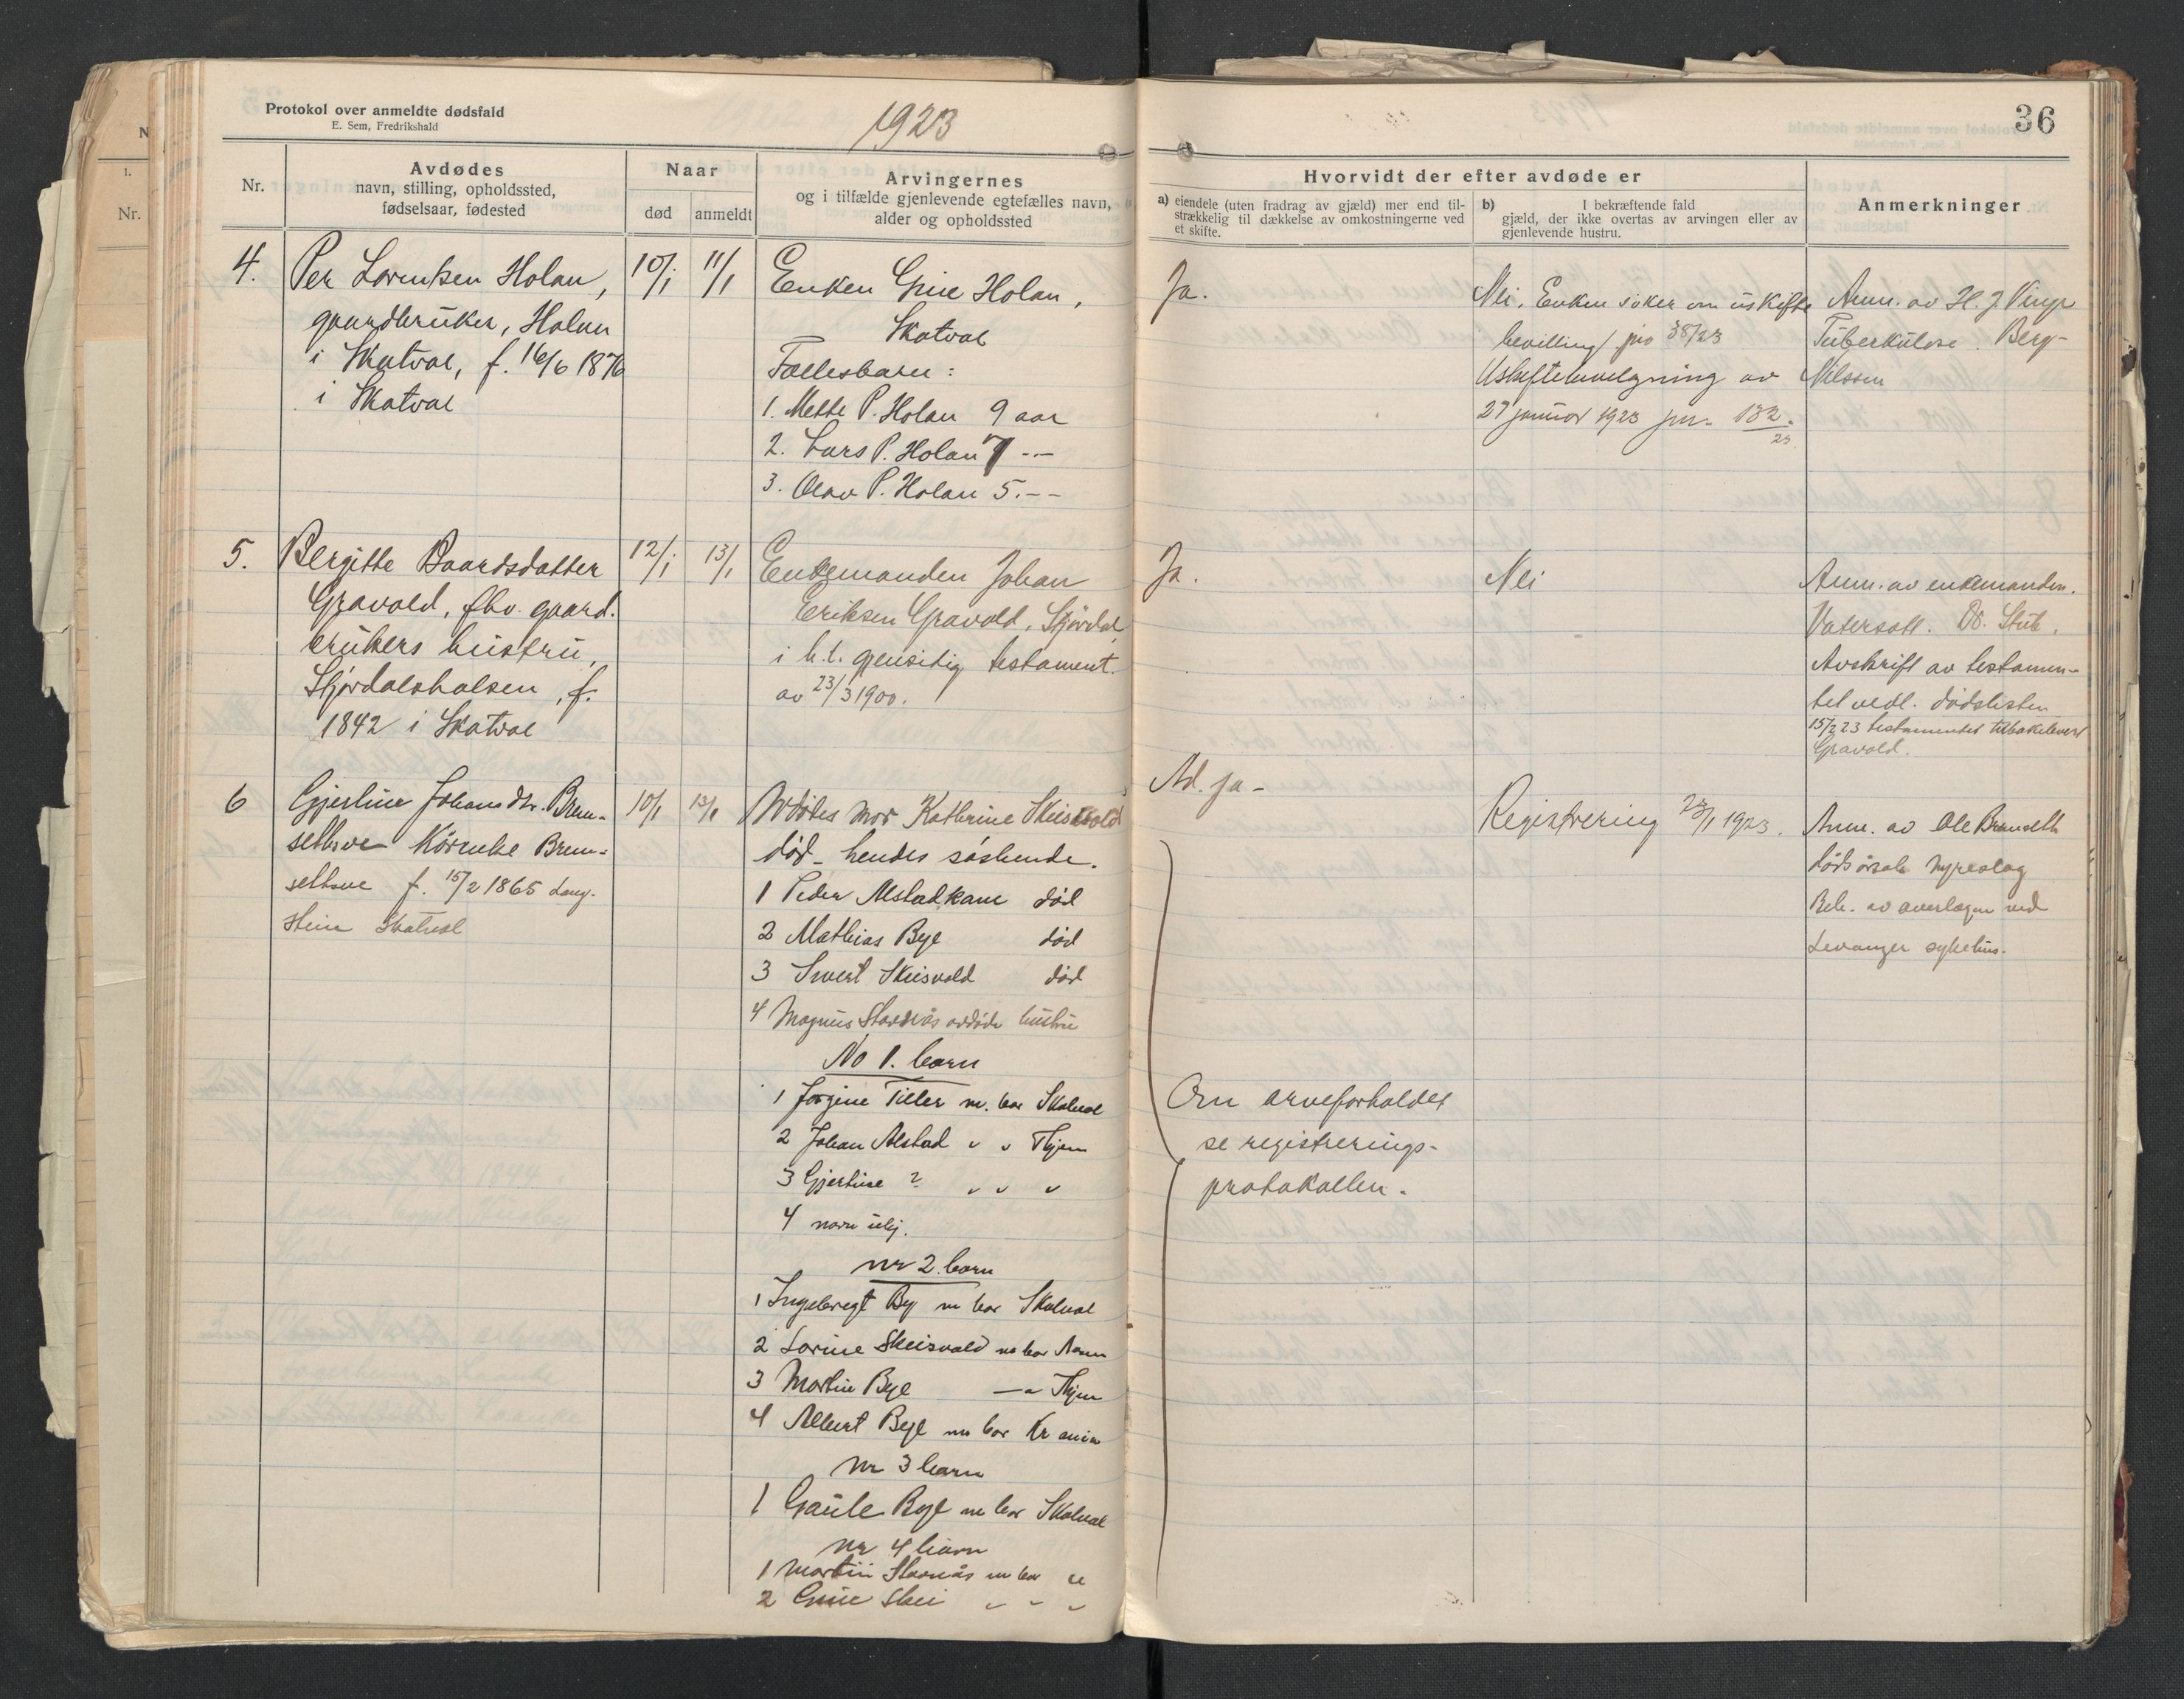 Protokol over anmeldte dødsfald
E. Sem, Fredrikshald
1923
Nr.
Avdødes
navn, stilling, opholdssted,
fødselsaar, fødested
Naar
død
anmeldt
Arvingernes
og i tilfælde gjenlevende egtefælles navn,
alder og opholdssted
4.
Per Lorentsen Holan,
gaardbruker, Holan
i Skatval, f. 16/6 1876
i Skatval
10/1
11/1
Enken Gine Holan,
Skatval
Fællesbarn:
1. Mette P. Holan 9 aar
2. Lars P. Holan 7 --
3. Olav P. Holan 5. --
5.
Bergitte Baardsdatter
Gravald, fhv. gaard-
brukers hustru,
Stjørdalshalsen, f.
1842 i Skatval
12/1
13/1
Enkemanden Johan
Eriksen Gravald, Stjørdal,
i h.t. gjensidig testament
av 23/3 1900.
6
Gjertine Johansdtr. Brem-
sethsve Kårenke Brem-
sethsve f. 15/2 1865 Lang-
stein Skatval
10/1
13/1
Avdødes mor Kathrine Skeisvold
død - hendes søskende.
1 Peder Alstadkam død
2 Mathias Bye død
3 Sivert Skeisvold død
4 Magnus Storvås avdøde hustru
No 1. barn
1 Jørgine Tiller nu bor Skatval
2 Johan Alstad " " Thjem
3 Gjertine ? " " "
4 navn ubj.
nr 2. barn
1 Ingebregt By nu bor Skatval
2 Lorine Skeisvold nu bor Aasen
3 Martin Bye — " Thjem
4 Albert Bye nu bor Kr ania
nr 3 barn
1 Gaule Bye nu bor Skatval
nr 4 barn
1 Martin Storvås nu bor "
2 Gine Skei " " "
36
Hvorvidt der efter avdøde er
a) eiendele (uten fradrag av gjæld) mer end til-
strækkelig til dækkelse av omkostningerne ved
et skifte.
b) I bekræftende fald
gjæld, der ikke overtas av arvingen eller av
gjenlevende hustru.
Anmerkninger
Ja.
Nei. Enken søker om uskifte
bevilling/ jno 38/23
Uskiftebevilgning av
27 januar 1923 jnr. 132/23.
Anm. av H. J. Vinge
Tuberkulose. Berg-
Nilssen
Ja.
Nei
Anm. av enkemanden.
Vatersott. Dr. Stub.
Avskrift av testamen-
tet vedl. dødslisten
15/2 23 testamentet tilbakelevert
Gravald.
Ad. ja -
Registrering 23/1 1923.
Anm. av Ole Bremseth
dødsårsak nyreslag
Beh. av overlægen ved
Levanger sykehus.
Om arveforholdet
se registrerings-
protokollen.